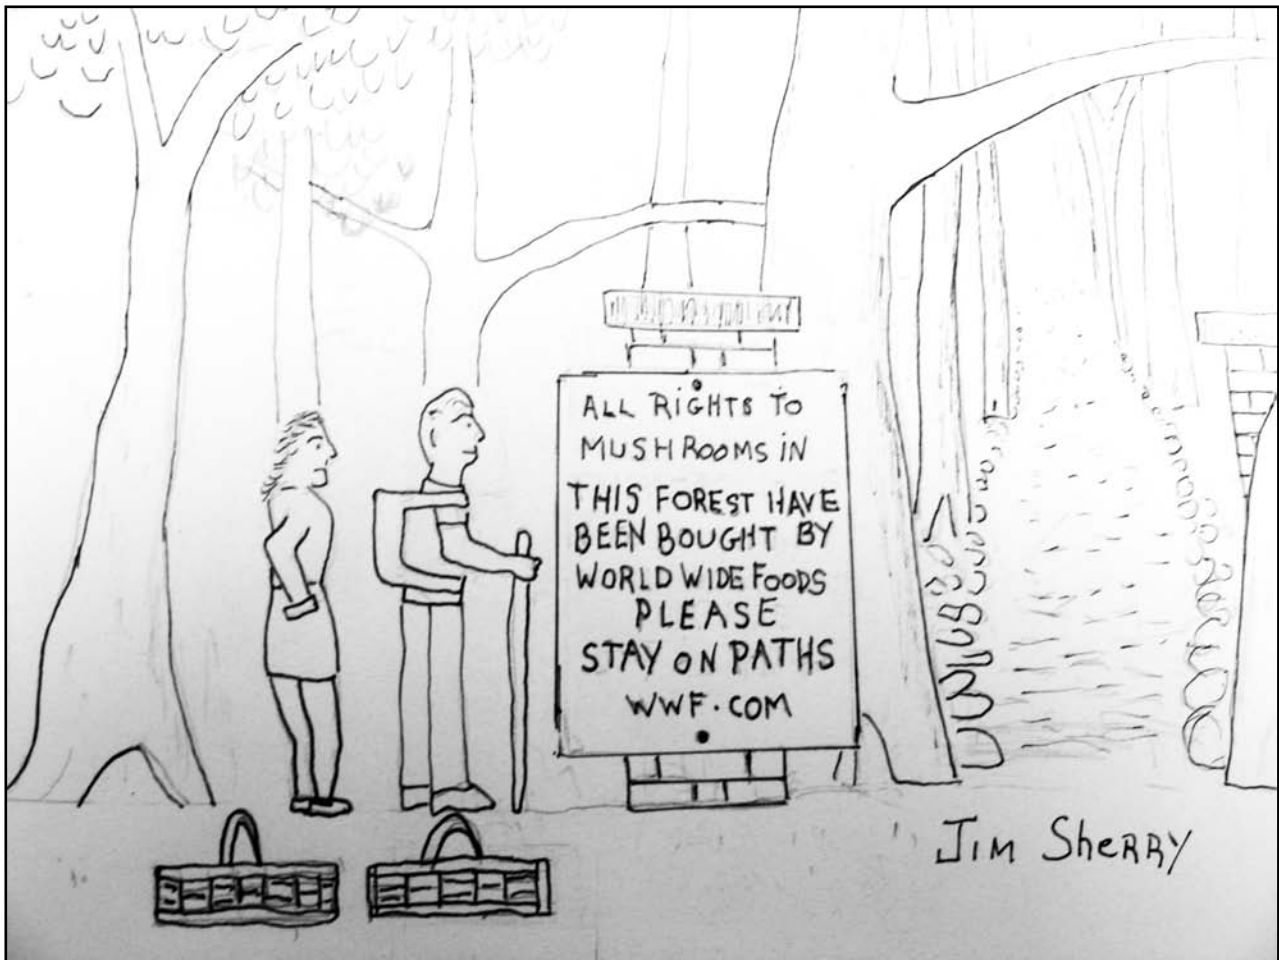 ALL RIGHTS TO
MUSHROOMS IN
THIS FOREST HAVE
BEEN BOUGHT BY
WORLD WIDE FOODS
PLEASE
STAY ON PATHS
WWF.COM
JIM SHERRY